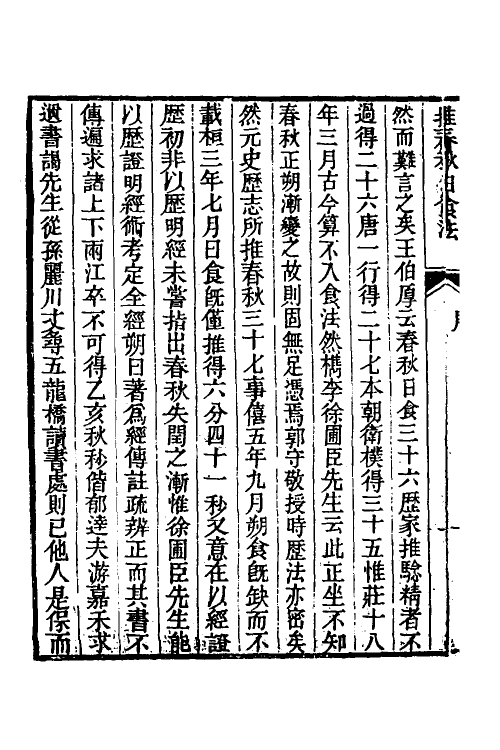 推春秋日食法
序
然而難言之矣王伯厚云春秋日食三十六歷家推驗精者不
過得二十六唐一行得二十七本朝衛樸得三十五惟莊十八
年三月古今算不入食法然檇李徐圃臣先生云此正坐不知
春秋正朔漸變之故則固無足憑焉郭守敬授時歷法亦密矣
然元史歷志所推春秋三十七事僖五年九月朔食旣缺而不
載桓三年七月日食旣僅推得六分四十一秒又意在以經證
歷初非以歷明經未嘗指出春秋失閏之漸惟徐圃臣先生能
以歷證明經術考定全經朔日著爲經傳註疏辨正而其書不
傳遍求諸上下兩江卒不可得乙亥秋杪偕郁逵夫游嘉禾求
遺書謁先生從孫麗川丈尋五龍橋讀書處則已他人是保而